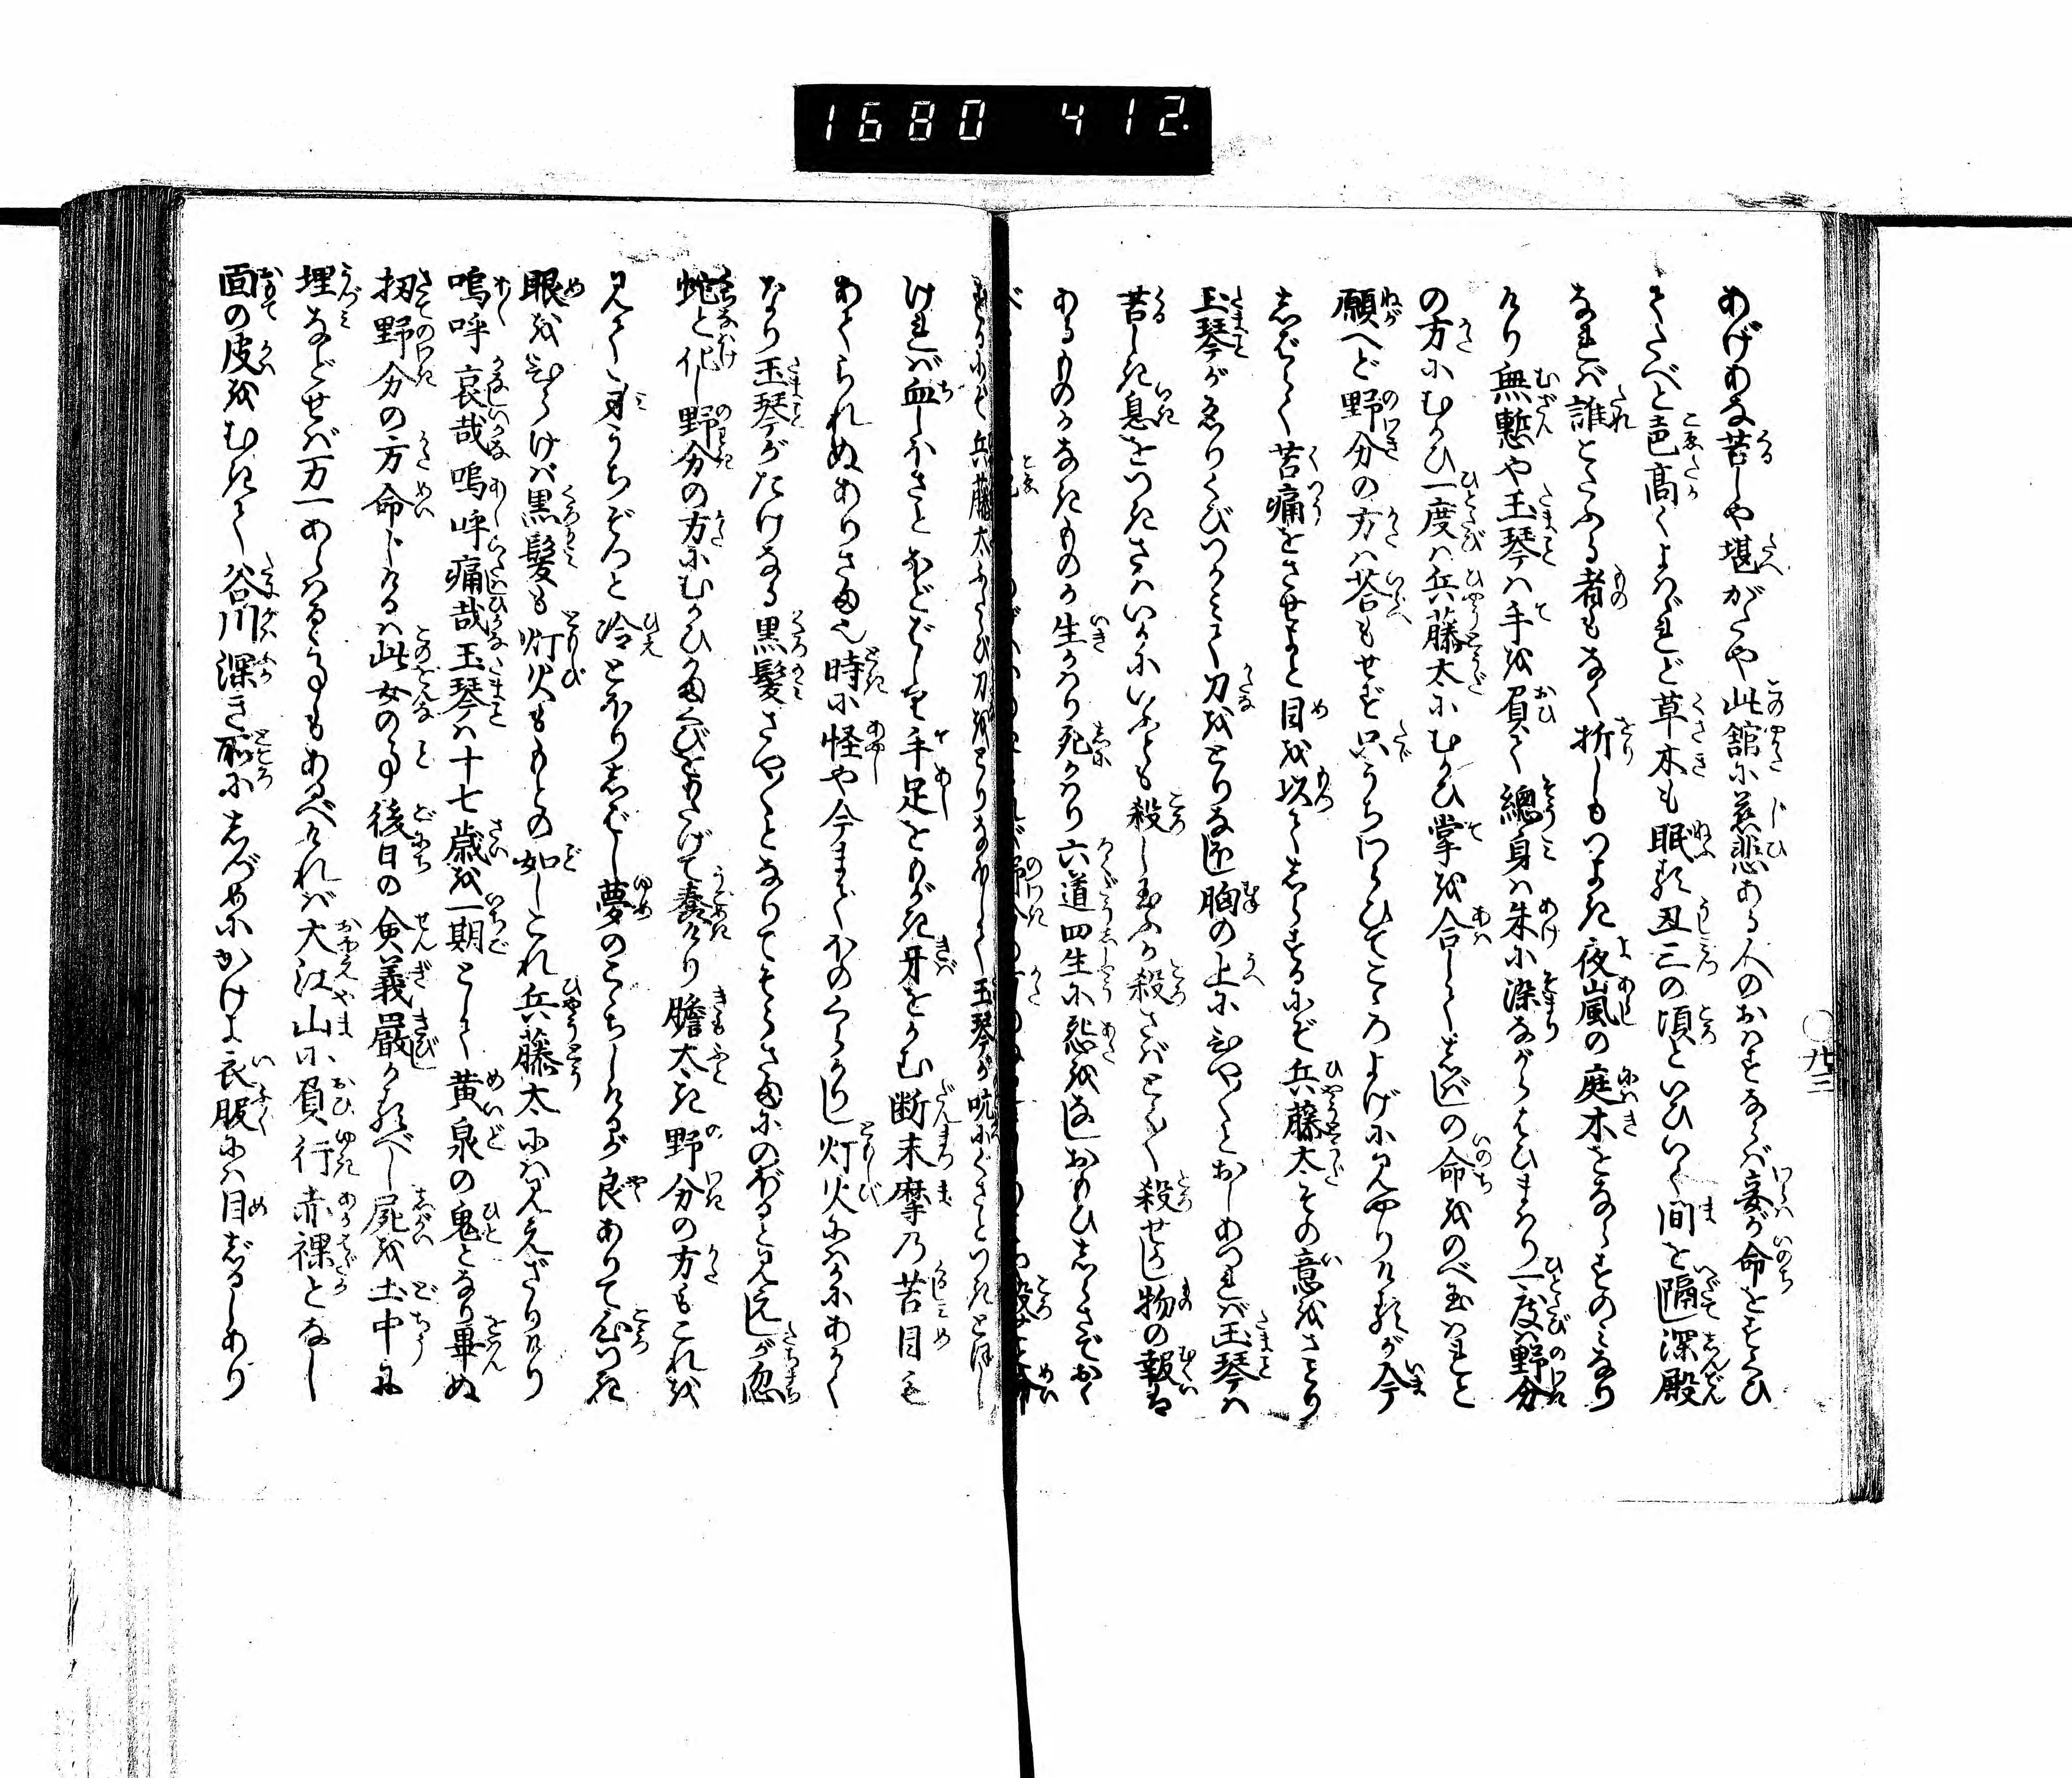 1680 412.
あげあな苦しや堪がたや此舘に慈悲ある人のおはすならば妾が命をすくひ
てたべと声高くよばれど草木も眠る丑三の頃といひいく間を隔し深殿
なれば誰とたふる者もなく折しもつよき夜嵐の庭木をならすのみなり
けり無慙や玉琴は手を負て總身は朱に染ながらはひまはり一度は野分
の方にむかひ一度は兵藤太にむかひ掌を合してしばしの命をのべ玉はれと
願へど野分の方は荅もせず只うちわらひてこころよげに見やりけるが今
しばらく苦痛をさせよと目を以てしらするにぞ兵藤太その意をさとり
玉琴がゑりくびつかみて刀をとりなほし胸の上にひや〳〵とおしあつれば玉琴は
苦しき息をつきさはいかにいふとも殺し玉ふか殺さばとく〳〵殺せかし物の報は
あるものかなきものか生かはり死かはり六道四生に怨をなしおもひしらさでおく
するにぞ兵藤太ふたゝび刀をとりなほして玉琴が吭にぐさとつきとほし
ければ血しほさとほどばしり手足をもがき牙をかむ断末摩の苦目も
あてられぬありさま也時に怪や今までほのくらかりし灯火にはかにあかく
なり玉琴がたけなる黒髪さや〳〵となりてそらさまにのぼると見えしが忽
蛇と化し野分の方にむかひかまくびをもたげて蠢けり膽太き野分の方もこれを
見て身うちぞつと冷とほりしばし夢のここちしけるが良ありて心つき
眼をひらけば黒髪も灯火ももとの如しこれ兵藤太には見えざりけり
嗚呼哀哉嗚呼痛哉玉琴は十七歳を一期として黄泉の鬼となり畢ぬ
扨野分の方命じけるは此女の事後日の僉義嚴かるべし屍を土中に
埋などせば万一あらはるゝ事もあるべければ大江山に負行赤裸となし
面の皮をむきて谷川深き所にしづめにかけよ衣服には目じるしあり